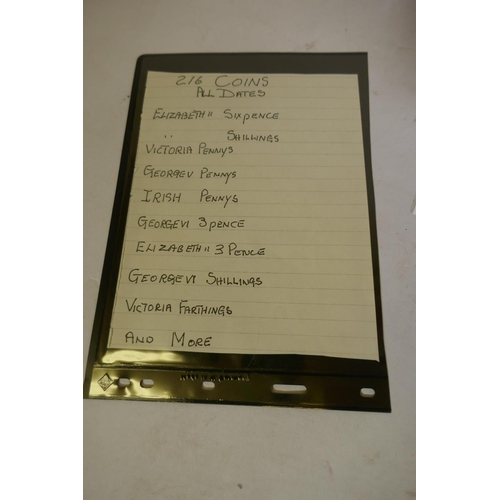 216 COINS
ALL DATES
ELIZABETH II SIXPENCE
" SHILLINGS
VICTORIA PENNYS
GEORGE V PENNYS
IRISH PENNYS
GEORGE VI 3 PENCE
ELIZABETH II 3 PENCE
GEORGE VI SHILLINGS
VICTORIA FARTHINGS
AND MORE